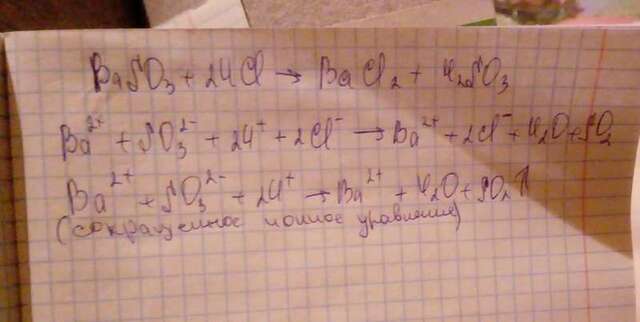 BaSO3 + 2HCl → BaCl2 + H2SO3
Ba2+ + SO3 2- + 2H+ + 2Cl- → Ba2+ + 2Cl- + H2O + SO2
Ba2+ + SO3 2- + 2H+ → Ba2+ + H2O + SO2↑
(сокращенное ионное уравнение)